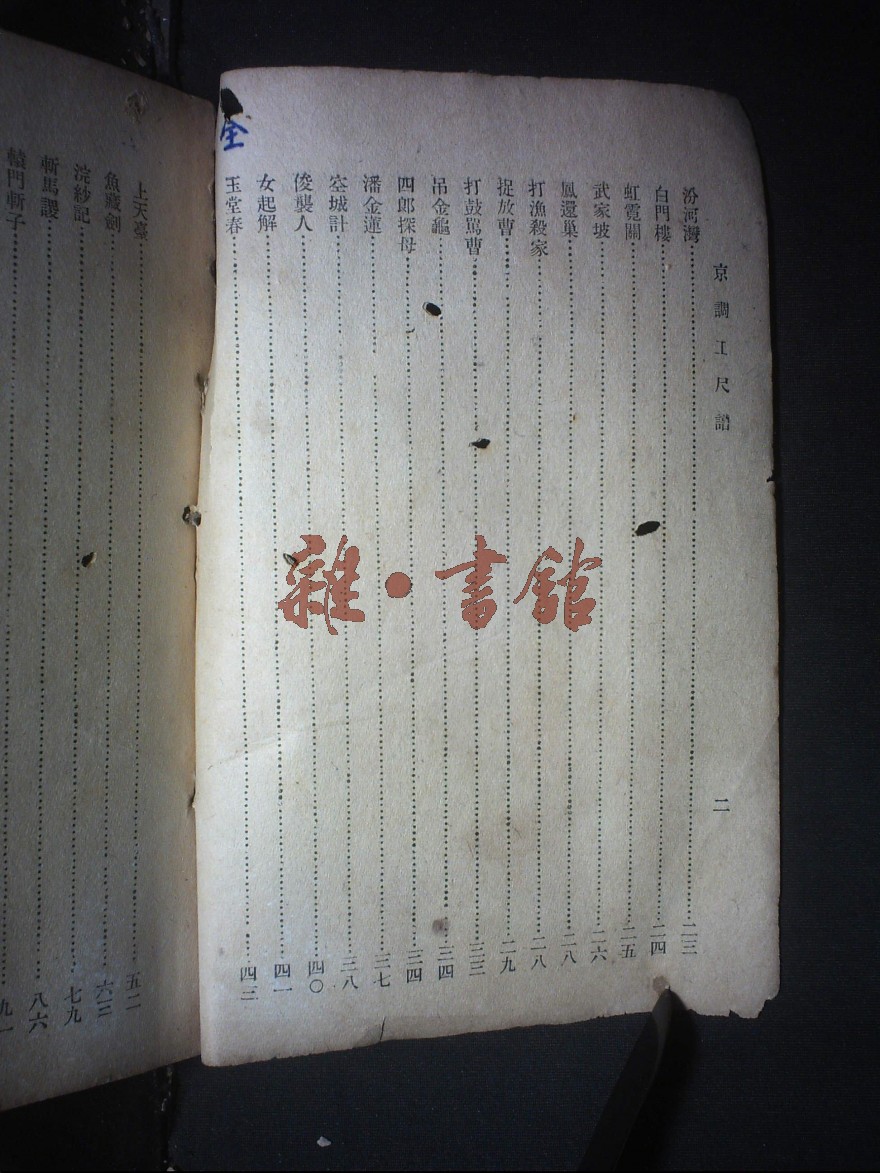 京調工尺譜
二
汾河灣……二三
白門樓……二四
虹霓關……二五
武家坡……二六
鳳還巢……二八
打漁殺家……二八
捉放曹……二九
打鼓罵曹……三三
吊金龜……三四
四郎探母……三四
潘金蓮……三七
空城計……三八
俊襲人……四〇
女起解……四一
玉堂春……四三
全
上天臺……五二
魚藏劍……六三
浣紗記……七九
斬馬謖……八六
轅門斬子……九一
雜·書館